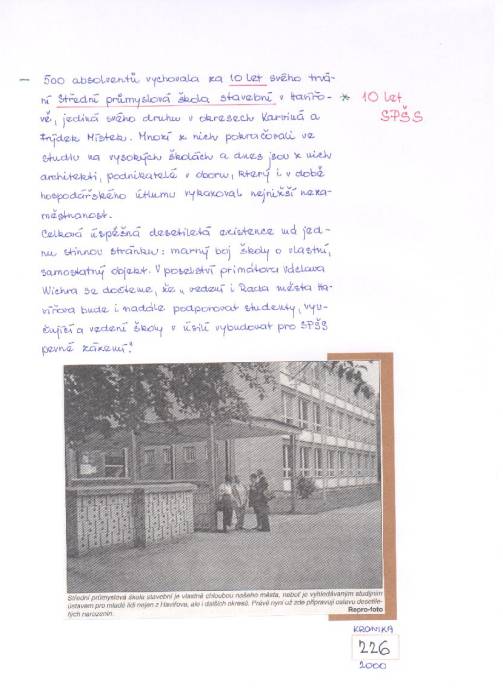 – 500 absolventů vychovala za 10 let svého trvá-
ní Střední průmyslová škola stavební v Havířo-
vě, jediná svého druhu v okresech Karviná a
Frýdek Místek. Mnozí z nich pokračovali ve
studiu na vysokých školách a dnes jsou z nich
architekti, podnikatelé v oboru, který i v době
hospodářského útlumu vykazoval nejnižší neza-
městnanost.
Celkově úspěšná desetiletá existence má jed-
nu stinnou stránku: marný boj školy o vlastní,
samostatný objekt. V poselství primátora Václava
Wichra se dočteme, že „vedení i Rada města Ha-
vířova bude i nadále podporovat studenty, vyu-
čující a vedení školy v úsilí vybudovat pro SPŠS
pevné zázemí."
* 10 let
SPŠS
Střední průmyslová škola stavební je vlastně chloubou našeho města, neboť je vyhledávaným studijním
ústavem pro mladé lidi nejen z Havířova, ale i dalších okresů. Právě nyní už zde připravují oslavu desetile-
tých narozenin.
Repro-foto
KRONIKA
226
2000